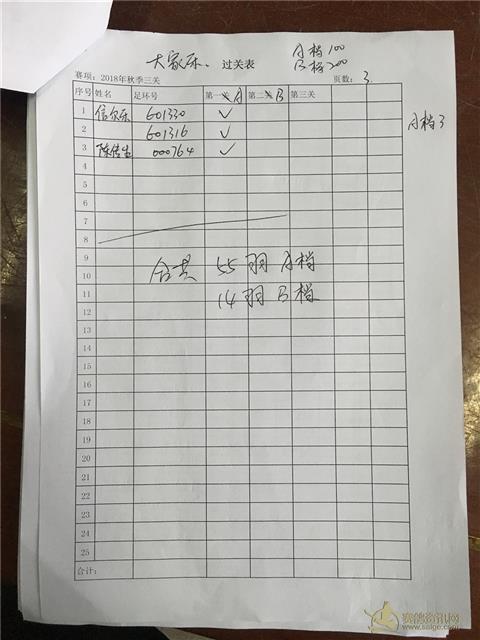 大家乐. 过关表
A档100
B档200
赛项：2018年秋季三关 页数：3
序号 姓名 足环号 第一关A 第二关B 第三关
1 信尔乐 601330 ✓
2 601316 ✓
3 000764 ✓
A档3
4
5
6
7
8
9 合共 55羽A档
10
11 14羽B档
12
13
14
15
16
17
18
19
20
21
22
23
24
25
合计：
赛鸽资讯网
www.saige.com